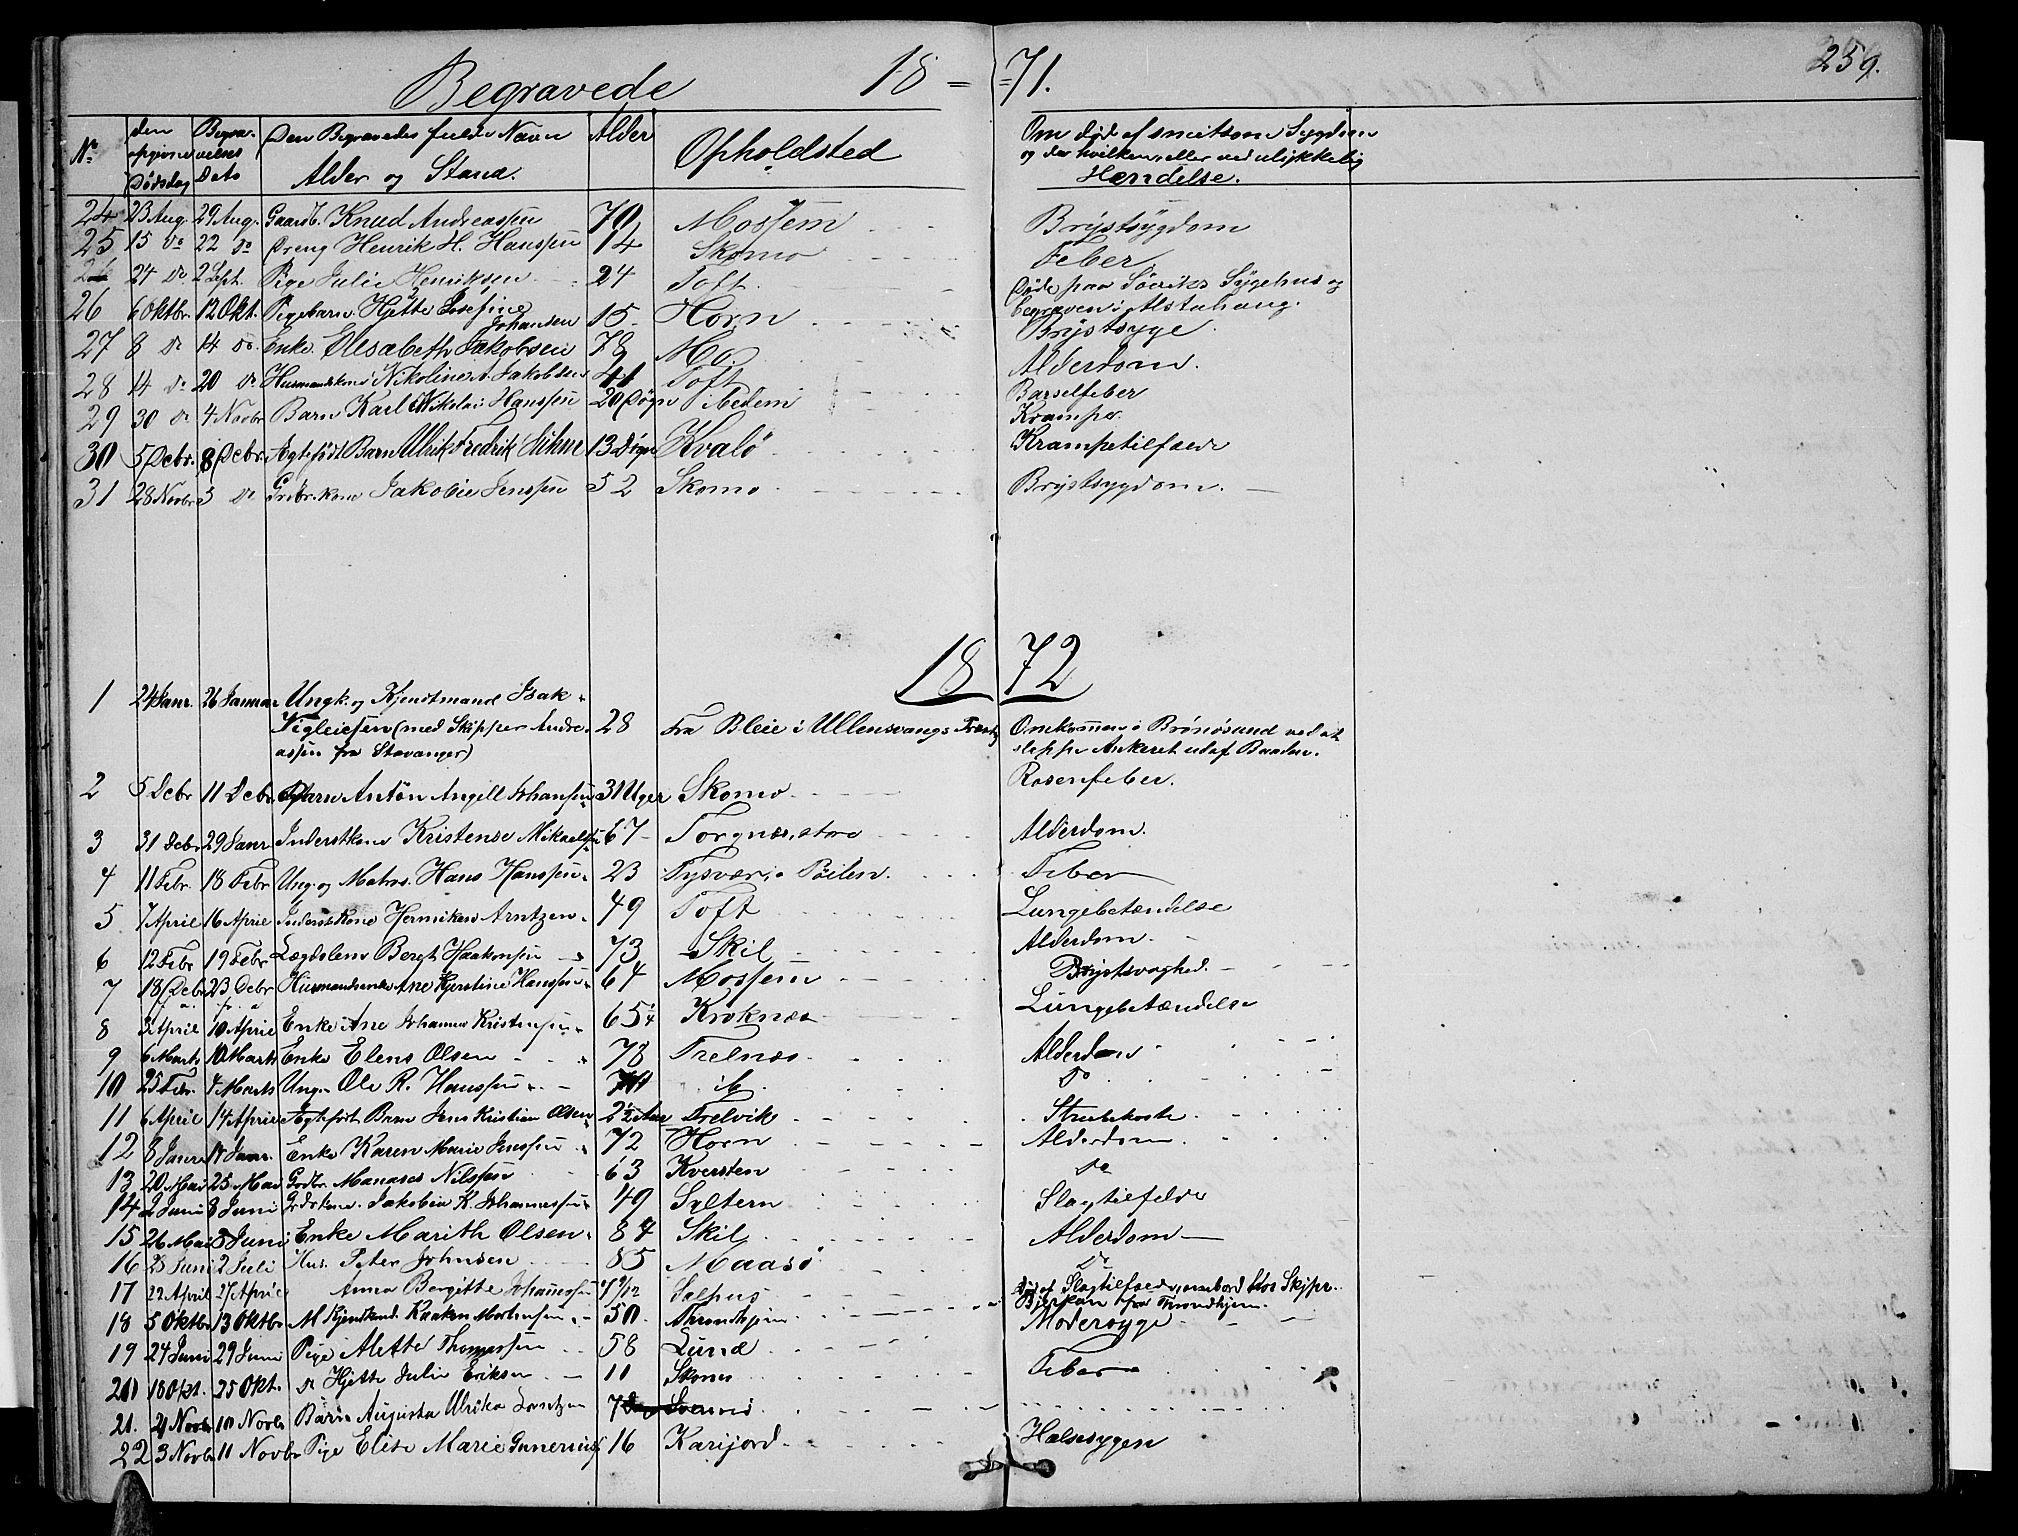 Begravede 18 = 71. 259.
No den opgivne Dødsdag Begravelses Dato Den Begravedes fulde Navn Alder og Stand. Alder Opholdsted Om død af smitsom Sygdom og da hvilken, eller ved ulykkelig Hændelse.
24 23 Aug. 29 Aug. Gaardb. Knud Andreassen 70 Mossem Brystsygdom
25 15 do 22 do Dreng Henrik H. Hanssen 14 Skomo Feber.
26 24 do 2 Sept. Pige Julie Henriksen 24 Toft. Døde paa Søviks Sygehus og
begraven i Alstahaug.
26 6 Oktbr. 12 Okt. Pigebarn Hjette Josefine Johansen 15 Horn Brystsyge
27 8 do 14 do. Enke. Elesabeth Jakobsen 78 Mo. Alderdom.
28 14 do 20 do Husmandskone Nikoline A. Jakobsen 41 Toft Barselfeber
29 30 do 4 Novbr Barn Karl Nikolai Hanssen 20 Døgn ibedem Krampe.
30 5 Decbr. 8 Decbr. Ægtefødt Barn Ulrik Fredrik 13 Døgn Kvalø Krampetilfælde
31 28 Novbr 3 do Grdbr. kone Jakobie Jenssen 52 Skomo Brystsygdom.
18 72
1 24 Janr. 26 Januar Ungk. og Kjendtmand Isak
Vigleiksen (med Skipper Andre- 28 Fra Bleie i Ullensvangs Omkommen i Brønøsund ved at
assen fra Stavanger) sleppe Ankeret ud af Baaden.
2 5 Decbr 11 Decbr. Barn Antón Angell Johansen 31 Uger Skomo Rosenfeber.
3 31 Decbr 29 Janr Inderstkone Kristense Mikaelsen 67 Torgnæs, store Alderdom.
4 11 Febr. 18 Febr Ung. og Matros. Hans Hanssen 23 Feber
5 7 April 16 April Inderstkone Hermikea Arntzen 49 Toft Lungebetændelse
6 12 Febr 19 Febr Lægdslem Bergt Haakonsen 73 Skil Alderdom.
7 18 Decbr 23 Decbr Husmandsenke Ane Kjerstine Hanssen 64 Mossem Brystsvaghed.
8 3 April 10 April Enke Ane Johanna Kristensen 65 Kroknæs Lungebetændelse
9 6 Marts 10 Marts Enke Elens Olsen 78 Trelnæs Alderdom
10 25 Febr. 4 Marts Ung. Ole R. Hanssen ib. do
11 6 April 14 April Ægtefødt Barn Jens Kristian Olsen 2½ Aar Trelvik Strubehoste
12 8 Janr Janr. Enke Karen Marie Jenssen 72 Horn Alderdom
13 20 Mai 25 Mai Grdbr. Manases Nilssen 63 Kversten do
14 2 Juni 8 Juni Jakobia K. Johannessen 49 Saltern Slagtilfelde
15 26 Mai 8 Juni Enke Marith Olsen 84 Skil Alderdom
16 25 Juni 2 Juli Hus. Peter Johnsen 85 Maasø do
17 22 April 27 April Anna Bergitte Johannessen Salhus Død af Slagtilfælde, ombord hos Skipr.
18 5 Oktbr 13 Oktbr Kjendtmd. Haaken Mortensen 50. Throndhjem Bjerkan fra Throndhjem.
19 24 Juni 29 Juni Pige Alette Thomassen 58 Lund Modersyge
20 18 Okt. 25 Okt. do Hjette Julie Eriksen 11 Skomo Feber
21. 4 Novbr 10 Novbr Barn Augusta Ulrika Lorntzen 7
22 3 Novbr 11 Novbr Pige Elise Marie Gunerius 16 Karijord Halssygen